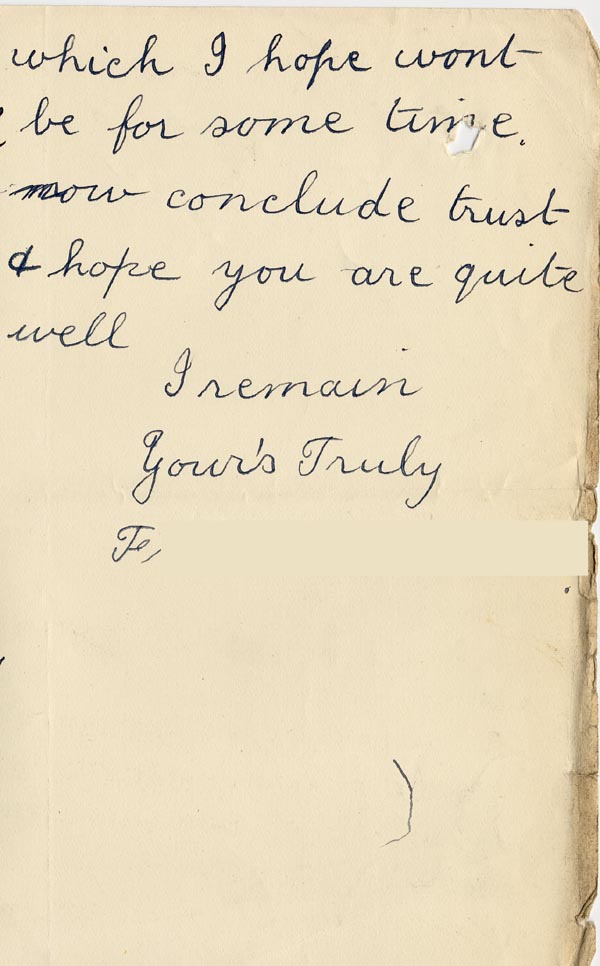 which I hope wont
be for some time.
now conclude trust
& hope you are quite
well
I remain
Your's Truly
F,